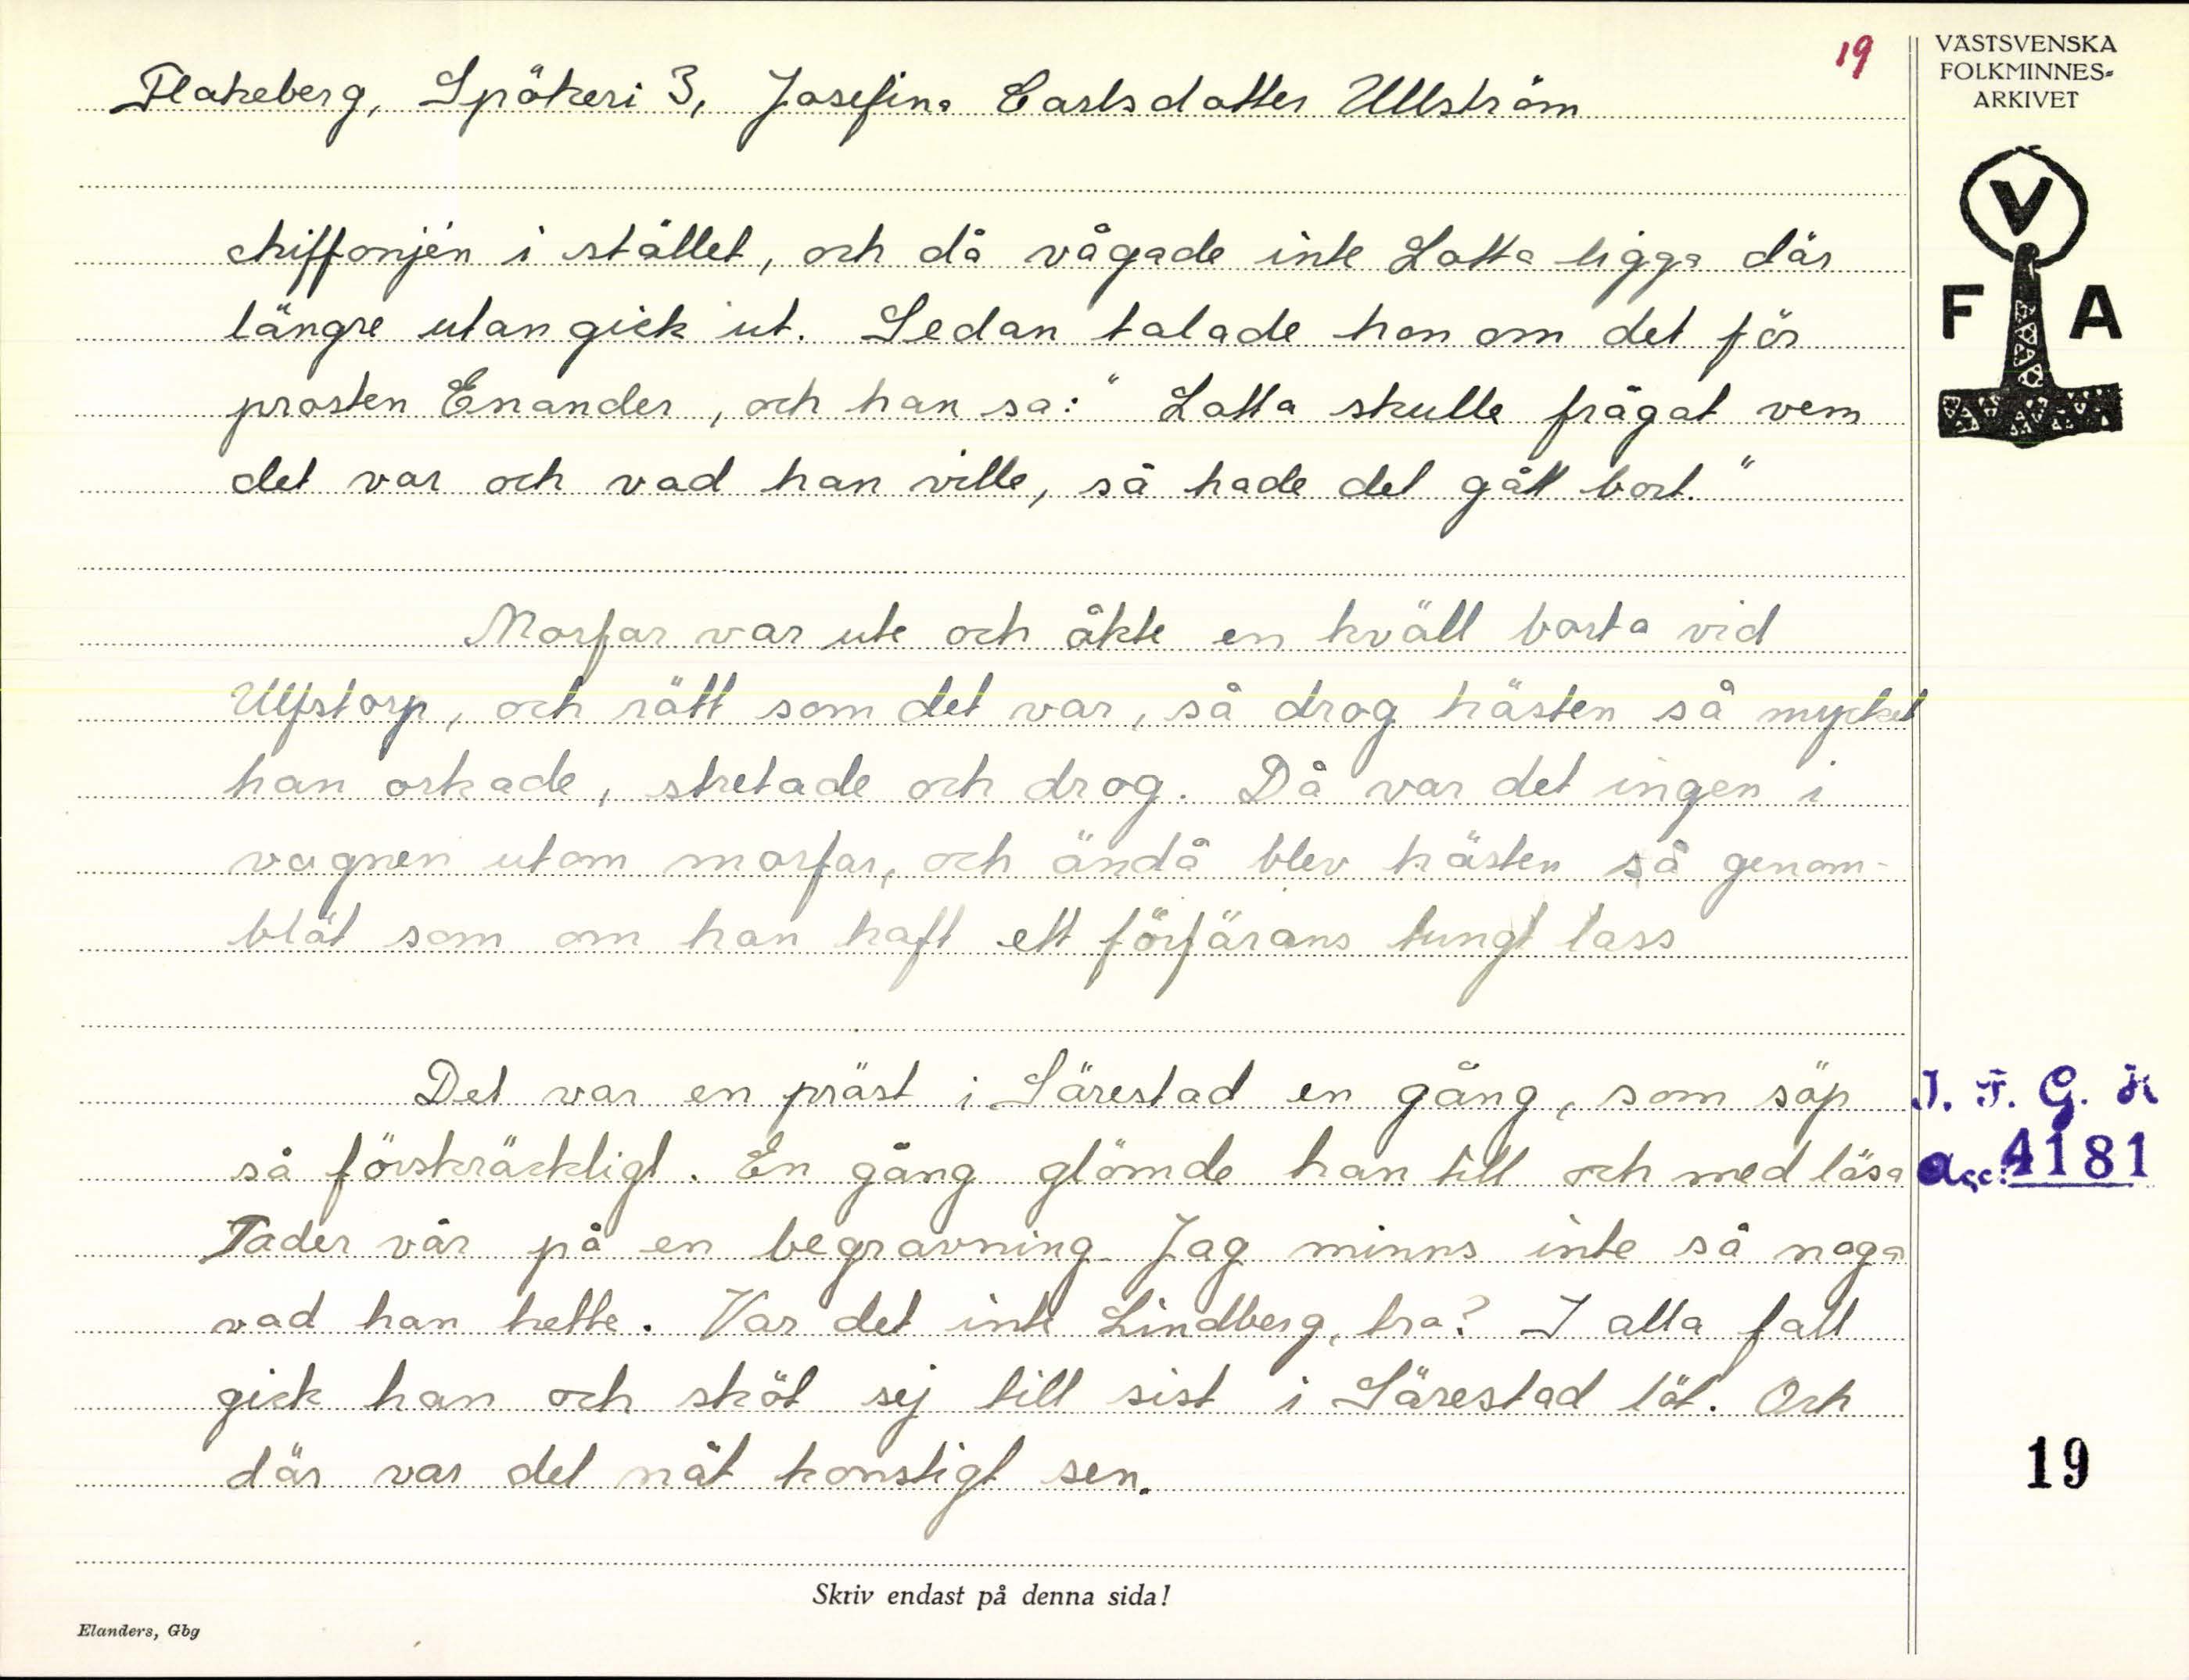 19
Flakeberg, Spökeri 3, Josefina Carlsdotter Ullström
chiffonjén i stället, och då vågade inte Lotta ligga där
längre utan gick ut. Sedan talade hon om det för
prosten Enander, och han sa: "Lotta skulle frågat vem
det var och vad han ville, så hade det gått bort."
Morfar var ute och åkte en kväll borta vid
Ulfstorp, och rätt som det var, så drog hästen så mycket
han orkade, stretade och drog. Då var det ingen i
vagnen utom morfar, och ändå blev hästen så genom-
blöt som om han haft ett förfärans tungt lass
Det var en präst i Särestad en gång, som söp
så förskräckligt. En gång glömde han till och med läsa
Fader vår på en begravning. Jag minns inte så noga
vad han hette. Var det inte Lindberg, tra? I alla fall
gick han och sköt sej till sist i Särestad löt. Och
där var det nåt konstigt sen.
Skriv endast på denna sida!
Elanders, Gbg
VÄSTSVENSKA
FOLKMINNES-
ARKIVET
V
F A
I. F. G. H
Acc: 4181
19